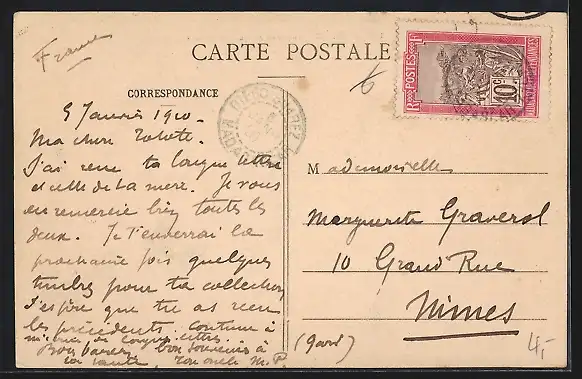 France
CARTE POSTALE
CORRESPONDANCE
5 Janvier 1910.
Ma chère
J'ai reçu ta longue lettre
et celle de ta mère. Je vous
en remercie bien toutes les
deux. Je t'enverrai la
prochaine fois quelques
timbres pour ta collection
J'espère que tu as reçu
les précédents. Continue à
m'écrire de longues lettres.
bon souvenir à
ta tante. Ton oncle M.P.
POSTES
10 c.
DIÉGO-SUAREZ
Mademoiselle
Marguerite Graverol
10 Grand Rue
Nimes
(Gard)
4,-